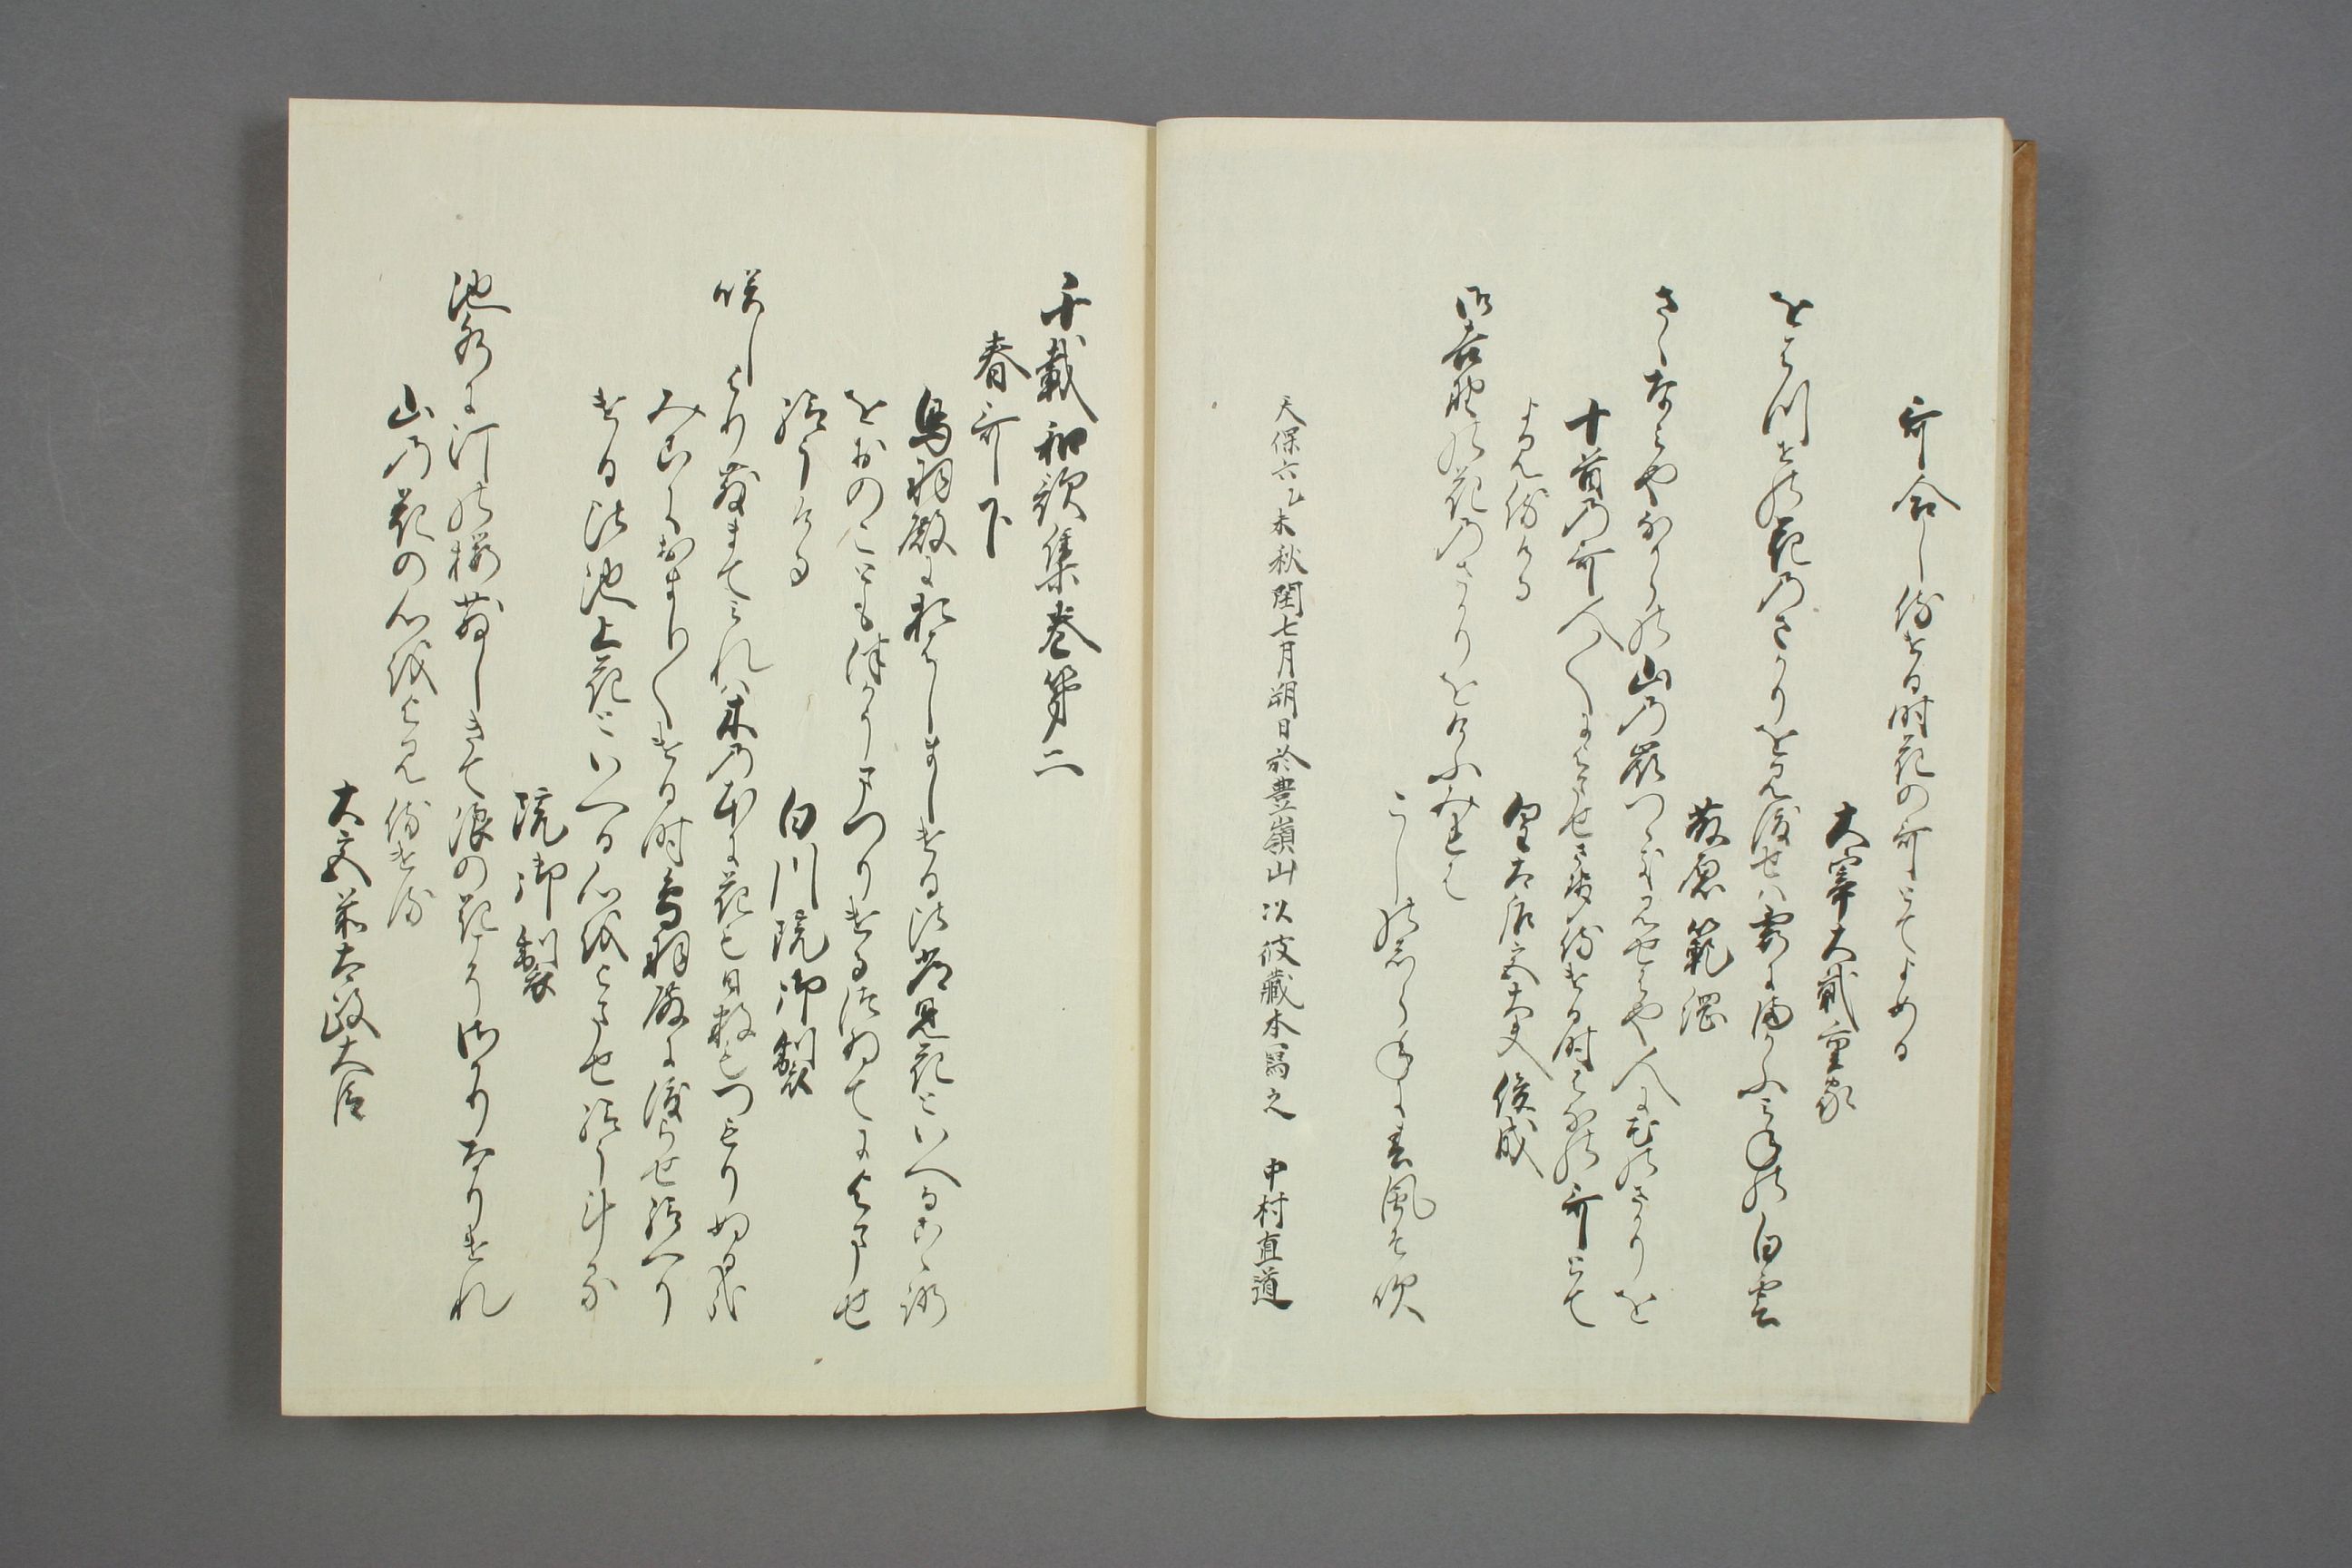 哥合し侍ける時花の哥とてよめる
大宰大貳重家
をはつせの花のさかりを見渡せは霞にまかふみねの白雲
藤原範綱
さゝなみやなからの山の峯つゝき見せはや人に花のさかりを
十首の哥人〱によませ侍ける時はなの哥とて
よみ侍ける
皇太后宮大夫俊成
み吉野の花のさかりをけふみれは
こしのしらねに春風そ吹
天保六乙未秋閏七月朔日於豊嶺山以彼藏本写之 中村直道
千載和歌集巻第二
春哥下
鳥羽殿におはしましける比常見花といへるこゝろ
をおのことも津かうまつりけるつゐてによませ
給うける
白川院御製
咲しより散まてみれは木の本に花も日数もつもりぬる哉
みこにおまし〱ける時鳥羽殿に渡らせ給へり
ける比池上花といへる心をよませ給うける
院御製
池水に汀の桜散しきて浪の花こそさかりなりけれ
山の花の心をよみ侍ける
大宮前太政大臣